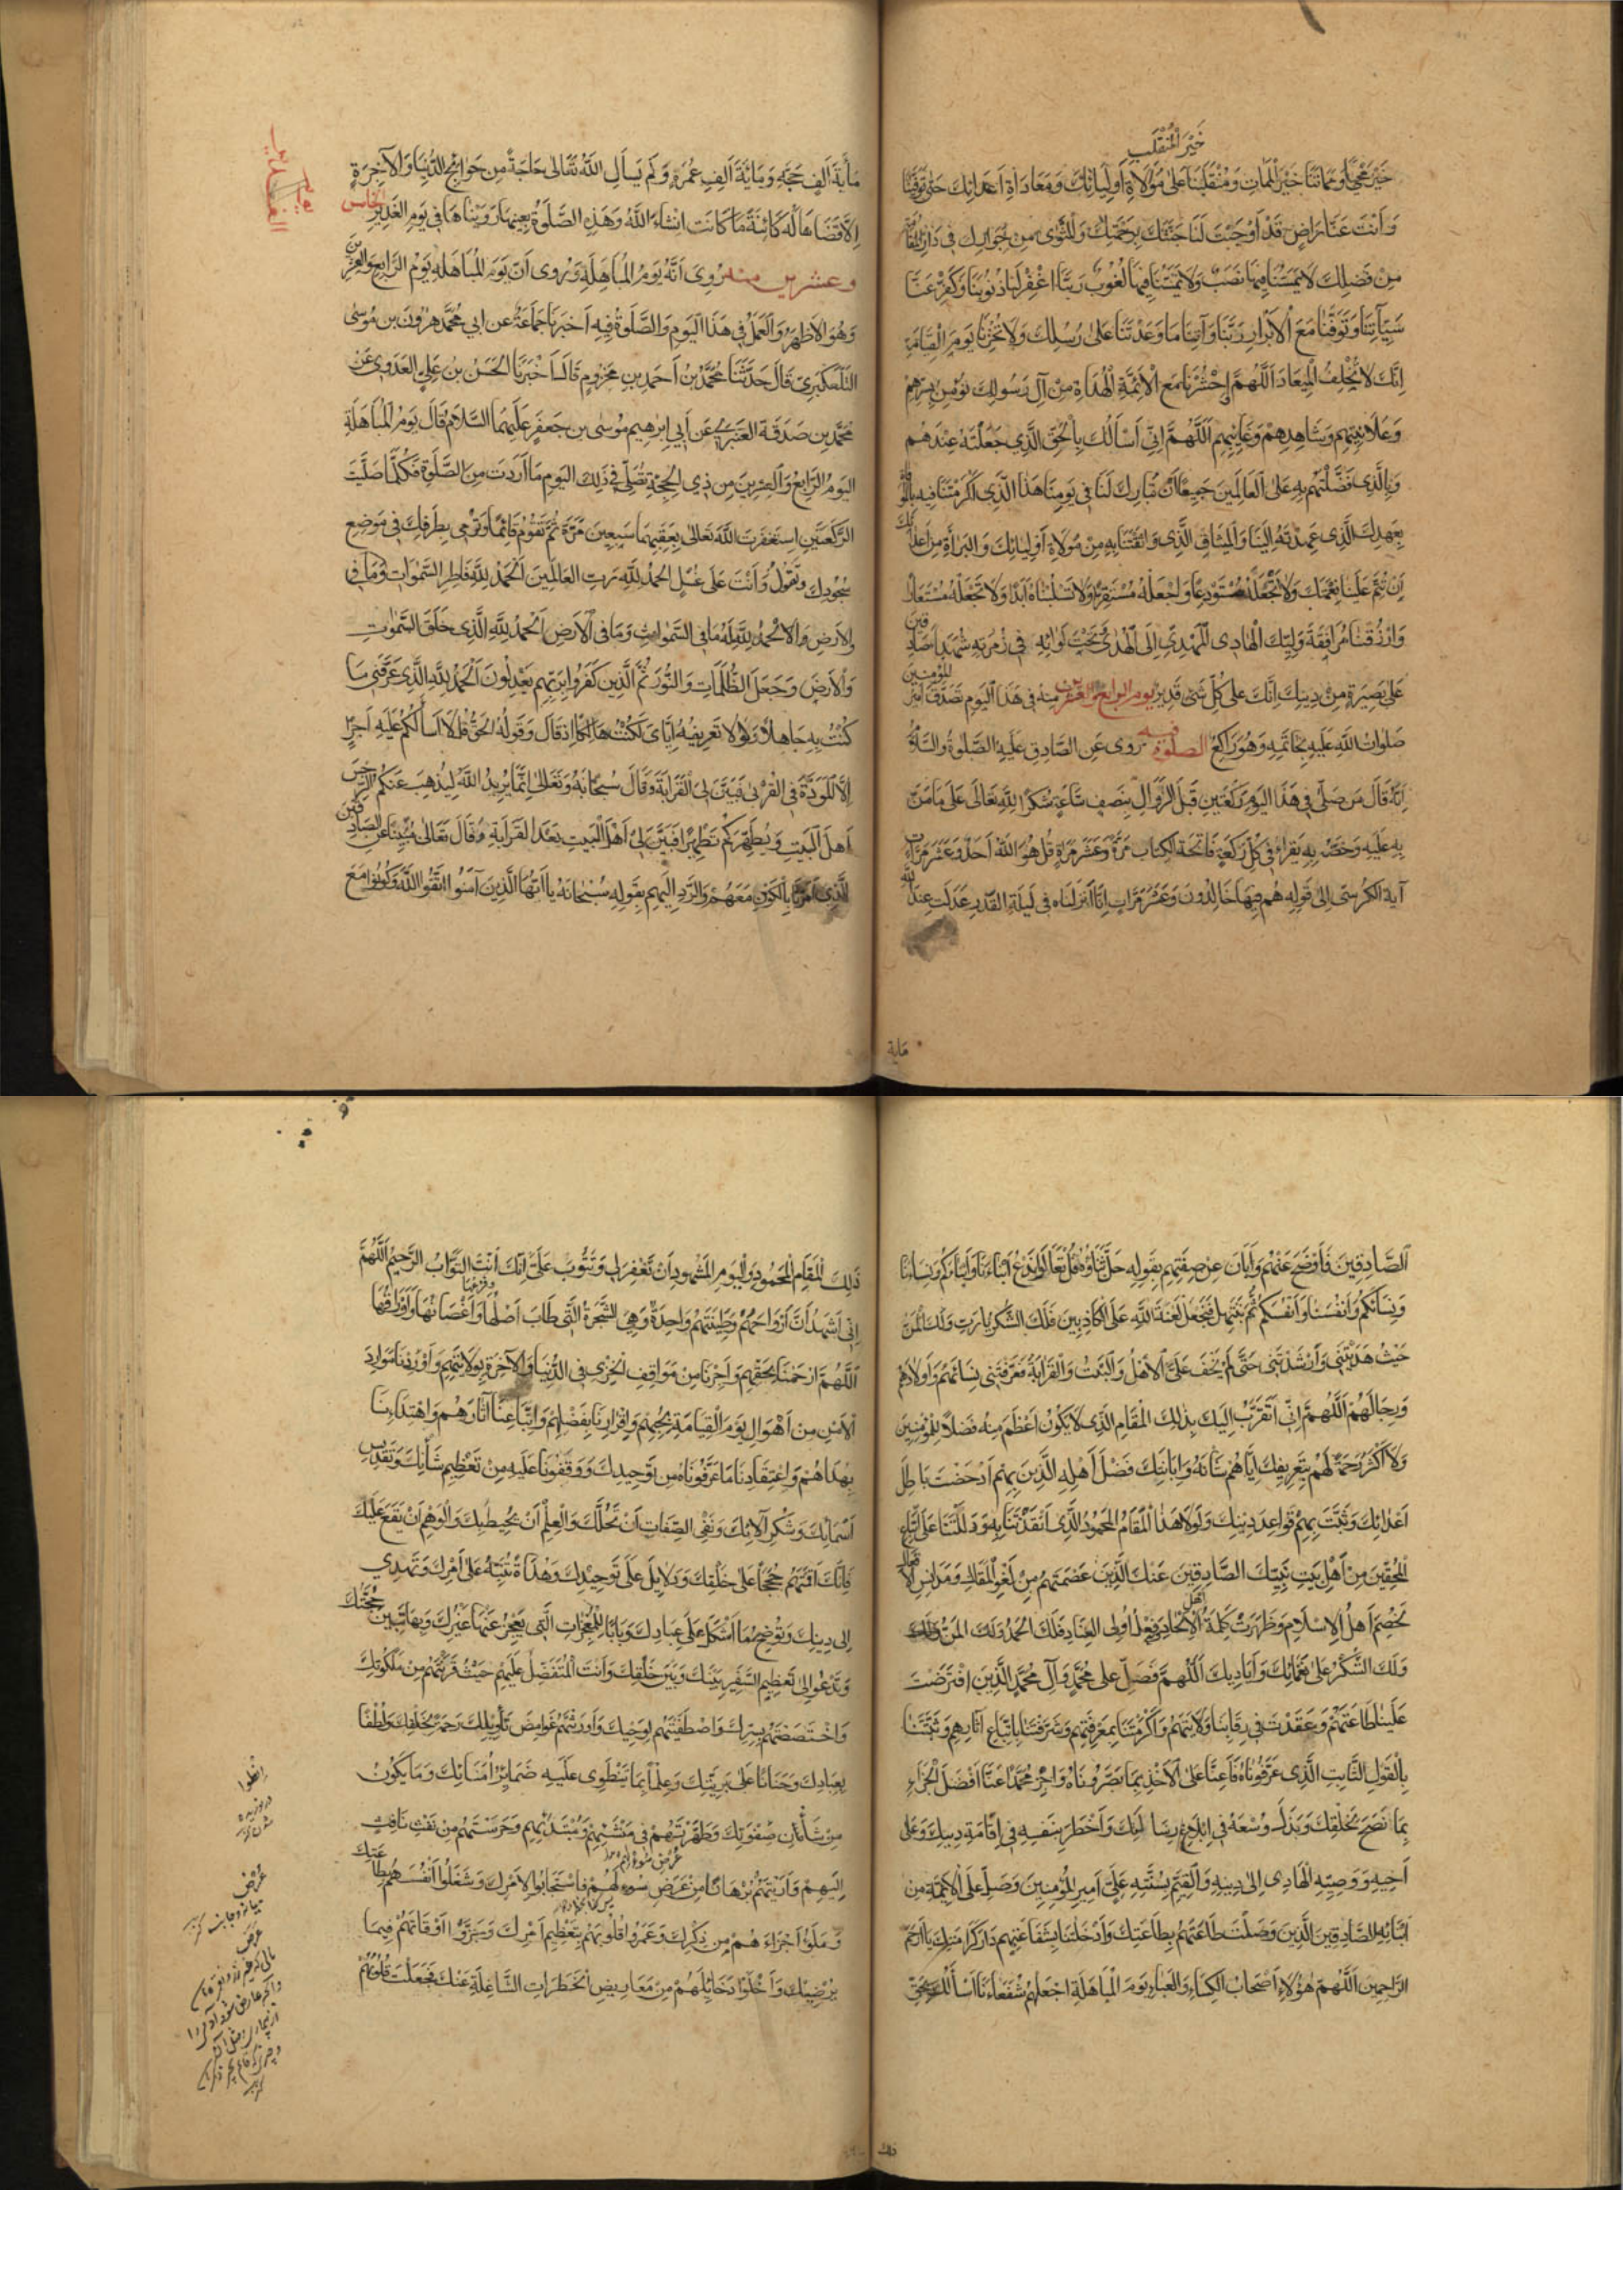 خَيْرَ الْمُنْقَلَبِ
خَيْرَ مَحْيًا وَمَمَاتَنَا خَيْرَ الْمَمَاتِ وَمُنْقَلَبَنَا عَلَى مُوَالَاةِ اَوْلِيَائِكَ وَمُعَادَاةِ اَعْدَائِكَ حَتّى تَوَفَّانَا
وَاَنْتَ عَنَّا رَاضٍ قَدْ اَوْجَبْتَ لَنَا جَنَّتَكَ بِرَحْمَتِكَ وَالْمَثْوى مِنْ جِوَارِكَ فِي دَارِ الْمُقَامَةِ
مِنْ فَضْلِكَ لَا يَمَسُّنَا فِيهَا نَصَبٌ وَلَا يَمَسُّنَا فِيهَا لُغُوبٌ رَبَّنَا اغْفِرْ لَنَا ذُنُوبَنَا وَكَفِّرْ عَنَّا
سَيِّاٰتِنَا وَتَوَفَّنَا مَعَ الْاَبْرَارِ رَبَّنَا وَآتِنَا مَا وَعَدْتَنَا عَلَى رُسُلِكَ وَلَا تُخْزِنَا يَوْمَ الْقِيَامَةِ
اِنَّكَ لَا تُخْلِفُ الْمِيعَادَ اَللَّهُمَّ احْشُرْنَا مَعَ الْاَئِمَّةِ الْهُدَاةِ مِنْ آلِ رَسُولِكَ نُؤْمِنُ بِسِرِّهِمْ
وَعَلَانِيَتِهِمْ وَشَاهِدِهِمْ وَغَائِبِهِمْ اَللَّهُمَّ اِنِّي اَسْاَلُكَ بِالْحَقِّ الَّذِي جَعَلْتَهُ عِنْدَهُمْ
وَبِالَّذِي فَضَّلْتَهُمْ بِهِ عَلَى الْعَالَمِينَ جَمِيعًا اَنْ تُبَارِكَ لَنَا فِي يَوْمِنَا هَذَا الَّذِي اَكْرَمْتَنَا فِيهِ بِالْوَفَاءِ
بِعَهْدِكَ الَّذِي عَهِدْتَهُ اِلَيْنَا وَالْمِيثَاقِ الَّذِي وَاثَقْتَنَا بِهِ مِنْ مُوَالَاةِ اَوْلِيَائِكَ وَالْبَرَاءَةِ مِنْ اَعْدَائِكَ
اَنْ تُتِمَّ عَلَيْنَا نِعْمَتَكَ وَلَا تَجْعَلْهُ مُسْتَوْدَعًا وَاجْعَلْهُ مُسْتَقَرًّا وَلَا تَسْلُبْنَاهُ اَبَدًا وَلَا تَجْعَلْهُ مُسْتَعَارًا
وَارْزُقْنَا مُرَافَقَةَ وَلِيِّكَ الْهَادِي الْمَهْدِيِّ اِلَى الْهُدَى وَتَحْتَ لِوَائِهِ فِي زُمْرَتِهِ شُهَدَاءَ صَادِقِينَ
عَلَى بَصِيرَةٍ مِنْ دِينِكَ اِنَّكَ عَلَى كُلِّ شَيْءٍ قَدِيرٌ يوم الرابع والعشرين منه فِي هَذَا الْيَوْمِ تَصَدَّقَ اَمِيرُ المؤمنين
صَلَوَاتُ اللَّهِ عَلَيْهِ بِخَاتَمِهِ وَهُوَ رَاكِعٌ الصلوة فيه رُوِىَ عَنِ الصَّادِقِ عَلَيْهِ الصَّلوةُ وَالسَّلَامُ
اَنَّهُ قَالَ مَن صَلَّى فِي هَذَا الْيَوْمِ رَكْعَتَيْنِ قَبْلَ الزَّوَالِ بِنِصْفِ سَاعَةٍ شُكْرًا لِلَّهِ تَعَالَى عَلَى مَا مَنَّ
بِهِ عَلَيْهِ وَخَصَّهُ بِهِ يَقْرَاُ فِي كُلِّ رَكْعَةٍ فَاتِحَةَ الْكِتَابِ مَرَّةً وَعَشْرَ مَرَّاةٍ قُلْ هُوَ اللَّهُ اَحَدٌ وَعَشْرَ مَرَّاتٍ
آيَةَ الْكُرْسِي اِلَى قَوْلِهِ هُمْ فِيهَا خَالِدُونَ وَعَشْرَ مَرَّاتٍ اِنَّا اَنْزَلْنَاهُ فِي لَيْلَةِ الْقَدْرِ عَدَلَتْ عِنْدَ اللّه
ماية
مِأيَةَ اَلْفِ حَجَّةٍ وَمِائَةَ اَلْفِ عُمْرَةٍ وَلَمْ يَسْاَلِ اللَّهَ تَعَالَى حَاجَةً مِنْ حَوَائِجِ الدُّنْيَا وَالْآخِرَةِ
اِلَّا قَضَاهَا لَهُ كَائِنَةً مَا كَانَت اِنْشَاءَ اللَّهُ وَهَذِهِ الصَّلَوةُ بِعَيْنِهَا رَوَيْنَاهَا فِي يَوْمِ الْغَدِيرِ الخامس
وعشرين منه رُوِىَ اَنَّهُ يَوْمُ الْمُبَاهَلَةِ وَرُوِى اَنَّ يَوْمَ الْمُبَاهَلَةِ يَوْمُ الرَّابِعِ وَالْعِشْرِين
وَهُوَ الْاَظْهَرُ وَالْعَمَلُ فِي هَذَا الْيَوْمِ وَالصَّلَوةُ فِيهِ اَخْبَرَنَا جَمَاعَةٌ عَن اَبِي مُحَمَّدٍ هٰرُونَ بن مُوسَى
التَّلَّعُكْبَرِيِّ قَالَ حَدَّثَنَا مُحَمَّدُ بْنُ اَحْمَدِ بنِ مَخْزُومٍ قَالَ اَخْبَرَنَا الْحَسَنُ بْنُ عَلِيٍّ الْعَدَوِيُّ عَنْ
مُحَمَّدِ بن صَدَقَةَ الْعَنْبَرِيِّ عَنْ اَبِي اِبْرٰهِيمَ مُوسَى بن جَعْفَرٍ عَلَيْهِمَا السَّلَامُ قَالَ يَوْمُ الْمُبَاهَلَةِ
الْيَوْمُ الرَّابِعُ وَالْعِشْرِينَ مِن ذِي الْحِجَّةِ تُصَلِّي فِي ذَلِكَ الْيَوْمِ مَا اَرَدْتَ مِنَ الصَّلَوةِ فَكُلَّمَا صَلَّيْتَ
الرَّكْعَتَيْنِ اسْتَغْفَرْتَ اللَّهَ تَعَالَى بِعَقِبِهِمَا سَبْعِينَ مَرَّةً ثُمَّ تَقُومُ قَائِمًا وَتُومِي بِطَرْفِكَ فِي مَوْضِعِ
سُجُودِكَ وَتَقُولُ وَاَنْتَ عَلَى غُسْلٍ الْحَمْدُ لِلَّهِ رَبِّ الْعَالَمِينَ الْحَمْدُ لِلَّهِ فَاطِرِ السَّمٰوَاتِ
وَالْاَرْضِ الْحَمْدُ لِلَّهِ لَهُ مَا فِي السَّمٰوَاتِ وَمَا فِي الْاَرْضِ الْحَمْدُ لِلَّهِ الَّذِي خَلَقَ السَّمٰوَاتِ
وَالْاَرْضَ وَجَعَلَ الظُّلُمَاتِ وَالنُّورَ ثُمَّ الَّذِينَ كَفَرُوا بِرَبِّهِمْ يَعْدِلُونَ الْحَمْدُ لِلَّهِ الَّذِي عَرَّفَنِي مَا
كُنْتُ بِهِ جَاهِلًا وَلَوْلَا تَعْرِيفُهُ اِيَّايَ لَكُنْتُ هَالِكًا اِذ قَالَ وَقَوْلُهُ الْحَقُّ قُلْ لَا اَسْاَلُكُمْ عَلَيْهِ اَجْرًا
اِلَّا الْمَوَدَّةَ فِي الْقُرْبَى فَبَيَّنَ لِيَ الْقَرَابَةَ وَقَالَ سُبْحَانَهُ وَتَعَالَى اِنَّمَا يُرِيدُ اللَّهُ لِيُذْهِبَ عَنْكُمُ الرِّجْسَ
اَهْلَ الْبَيْتِ وَيُطَهِّرَكُمْ تَطْهِيرًا فَبَيَّنَ لِي اَهْلَ الْبَيْتِ بَعْدَ الْقَرَابَةِ وَقَالَ تَعَالَى مُبَيِّنًا عَنِ الصَّادِقِين
الَّذِي اَمَرَنَا بِالْكَوْنِ مَعَهُمْ وَالرَّدِّ اِلَيْهِمْ بِقَوْلِهِ سُبْحَانَهُ يَا اَيُّهَا الَّذِينَ آمَنُوا اتَّقُوا اللَّهَ وَكُونُوا مَعَ
الصَّادِقِينَ فَاَوْضَحَ عَنْهُمْ وَاَبَانَ عَنْ صِفَتِهِمْ بِقَوْلِهِ جَلَّ ثَنَاؤُهُ قُلْ تَعَالَوْا نَدْعُ اَبْنَاءَنَا وَاَبْنَاءَكُمْ وَنِسَاءَنَا
وَنِسَاءَكُمْ وَاَنْفُسَنَا وَاَنْفُسَكُمْ ثُمَّ نَبْتَهِلْ فَنَجْعَلْ لَعْنَةَ اللَّهِ عَلَى الْكَاذِبِينَ فَلَكَ الشُّكْرُ يَا رَبِّ وَلَكَ الْمَنُّ
حَيْثُ هَدَيْتَنِي وَاَرْشَدْتَنِي حَتَّى لَمْ يَخْفَ عَلَيَّ الْاَهْلُ وَالْبَيْتُ وَالْقَرَابَةُ فَعَرَّفْتَنِي نِسَائَهُمْ وَاَوْلَادَهُمْ
وَرِجَالَهُمْ اَللَّهُمَّ اِنِّي اَتَقَرَّبُ اِلَيْكَ بِذَلِكَ الْمَقَامِ الَّذِي لَا يَكُونُ اَعْظَمَ مِنْهُ فَضْلًا لِلْمُؤْمِنِينَ
وَلَا اَكْثَرَ رَحْمَةً لَهُمْ بِتَعْرِيفِكَ اِيَّاهُمْ شَأْنَهُ وَاِبَانَتِكَ فَضْلَ اَهْلِهِ الَّذِينَ بِهِمْ اَدْحَضْتَ بَاطِلَ
اَعْدَائِكَ وَثَبَّتَّ بِهِمْ قَوَاعِدَ دِينِكَ وَلَوْلَا هَذَا الْمَقَامُ الْمَحْمُودُ الَّذِي اَنْقَذْتَنَا بِهِ وَدَلَلْتَنَا عَلَى اتِّبَاعِ
الْمُحِقِّينَ مِنْ اَهْلِ بَيْتِ نَبِيِّكَ الصَّادِقِينَ عَنْكَ الَّذِينَ عَصَمْتَهُمْ مِنْ لَغْوِ الْمَقَالِ وَمَدَانِسِ الْاَفْعَالِ
لَخُصِمَ اَهْلُ الْاِسْلَامِ وَظَهَرَتْ كَلِمَةُ اَهْلِ الْاِلْحَادِ وَفِعْلُ اُولِي الْعِنَادِ فَلَكَ الْحَمْدُ وَلَكَ الْمَنُّ
وَلَكَ الشُّكْرُ عَلَى نَعْمَائِكَ وَاَيَادِيكَ اَللَّهُمَّ فَصَلِّ عَلَى مُحَمَّدٍ وَآلِ مُحَمَّدٍ الَّذِينَ افْتَرَضْتَ
عَلَيْنَا طَاعَتَهُمْ وَعَقَدْتَ فِي رِقَابِنَا وِلَايَتَهُمْ وَاَكْرَمْتَنَا بِمَعْرِفَتِهِمْ وَشَرَّفْتَنَا بِاتِّبَاعِ آثَارِهِمْ وَثَبَّتَّنَا
بِالْقَوْلِ الثَّابِتِ الَّذِي عَرَّفُونَاهُ فَاَعِنَّا عَلَى الْاَخْذِ بِمَا بَصَّرُونَاهُ وَاجْزِ مُحَمَّدًا عَنَّا اَفْضَلَ الْجَزَاءِ
بِمَا نَصَحَ لِخَلْقِكَ وَبَذَلَ وُسْعَهُ فِي اِبْلَاغِ رِسَالَتِكَ وَاَخْطَرَ بِنَفْسِهِ فِي اِقَامَةِ دِينِكَ وَعَلَى
اَخِيهِ وَوَصِيِّهِ الْهَادِي اِلَى دِينِهِ وَالْقَيِّمِ بِسُنَّتِهِ عَلِيٍّ اَمِيرِ الْمُؤْمِنِينَ وَصَلِّ عَلَى الْاَئِمَّةِ مِنْ
اَبْنَائِهِ الصَّادِقِينَ الَّذِينَ وَصَلْتَ طَاعَتَهُمْ بِطَاعَتِكَ وَاَدْخِلْنَا بِشَفَاعَتِهِمْ دَارَ كَرَامَتِكَ يَا اَرْحَمَ
الرَّاحِمِينَ اَللَّهُمَّ هٰؤُلَاءِ اَصْحَابُ الْكِسَاءِ وَالْعَبَاءِ يَوْمَ الْمُبَاهَلَةِ اجْعَلْهُمْ شُفَعَاءَنَا اَسْاَلُكَ بِحَقِّ
ذلك
ذَلِكَ الْمَقَامِ الْمَحْمُودِ وَالْيَوْمِ الْمَشْهُودِ اَنْ تَغْفِرَ لِي وَتَتُوبَ عَلَيَّ اِنَّكَ اَنْتَ التَّوَّابُ الرَّحِيمُ اَللَّهُمَّ
اِنِّي اَشْهَدُ اَنَّ اَرْوَاحَهُمْ وَطِينَتَهُمْ وَاحِدَةٌ وَهِيَ الشَّجَرَةُ الَّتِي طَابَ اَصْلُهَا وَاَغْصَانُهَا وَاَوْرَاقُهَا
اَللَّهُمَّ ارْحَمْنَا بِحَقِّهِمْ وَاَجِرْنَا مِنْ مَوَاقِفِ الْخِزْيِ فِي الدُّنْيَا وَالْآخِرَةِ بِوِلَايَتِهِمْ وَاَوْرِدْنَا مَوَارِدَ
الْاَمْنِ مِنْ اَهْوَالِ يَوْمِ الْقِيَامَةِ بِحُبِّهِمْ وَاِقْرَارِنَا بِفَضْلِهِمْ وَاتِّبَاعِنَا آثَارَهُمْ وَاهْتِدَاءِنَا
بِهُدَاهُمْ وَاعْتِقَادِنَا مَا عَرَّفُونَاهُ مِنْ تَوْحِيدِكَ وَوَقَّفُونَا عَلَيْهِ مِنْ تَعْظِيمِ شَأْنِكَ وَتَقْدِيسِ
اَسْمَائِكَ وَشُكْرِ آلَائِكَ وَنَفْيِ الصِّفَاتِ اَنْ تَحُلَّكَ وَالْعِلْمِ اَنْ يُحِيطَ بِكَ وَالْوَهْمِ اَنْ يَقَعَ عَلَيْكَ
فَاِنَّكَ اَقَمْتَهُمْ حُجَجًا عَلَى خَلْقِكَ وَدَلَايِلَ عَلَى تَوْحِيدِكَ وَهُدَاةً تُنَبِّهُ عَلَى اَمْرِكَ وَتَهْدِي
اِلَى دِينِكَ وَتُوضِحُ مَا اَشْكَلَ عَلَى عِبَادِكَ وَبَابًا لِلْمُعْجِزَاتِ الَّتِي يَعْجِزُ عَنْهَا غَيْرُكَ وَبِهَا تَبِينُ حُجَّتُكَ
وَتَدْعُوا اِلَى تَعْظِيمِ السَّفِيرِ بَيْنَكَ وَبَيْنَ خَلْقِكَ وَاَنْتَ الْمُتَفَضِّلُ عَلَيْهِمْ حَيْثُ قَرَّبْتَهُمْ مِنْ مَلَكُوتِكَ
وَاخْتَصَصْتَهُمْ بِسِرِّكَ وَاصْطَفَيْتَهُمْ لِوَحْيِكَ وَاَوْرَثْتَهُمْ غَوَامِضَ تَأْوِيلِكَ رَحْمَةً بِخَلْقِكَ وَلُطْفًا
بِعِبَادِكَ وَحَنَانًا عَلَى بَرِيَّتِكَ وَعِلْمًا بِمَا تَنْطَوِي عَلَيْهِ ضَمَائِرُ اُمَنَائِكَ وَمَا يَكُونُ
مِنْ شَأْنِ صَفْوَتِكَ وَطَهَّرْتَهُمْ فِي مَنْشَئِهِمْ وَمُبْتَدَئِهِمْ وَحَرَسْتَهُمْ مِنْ نَفْثِ نَافِثٍ
اِلَيْهِمْ وَاَرَيْتَهُمْ بُرْهَانًا مِنْ عَرَضِ سُوءٍ لَهُمْ فَاسْتَجَابُوا لِاَمْرِكَ وَشَغَلُوا اَنْفُسَهُمْ بِطَاعَتِكَ
وَمَلَؤُ اَجْزَاءَهُمْ مِنْ ذِكْرِكَ وَعَمَرُوا قُلُوبَهُمْ بِتَعْظِيمِ اَمْرِكَ وَجَزَّؤُا اَوْقَاتَهُمْ فِيمَا
يُرْضِيكَ وَاَخْلَوْا دَخَائِلَهُمْ مِنْ مَعَارِيضِ الْخَطَرَاتِ الشَّاغِلَةِ عَنْكَ فَجَعَلْتَ قُلُوبَهُمْ